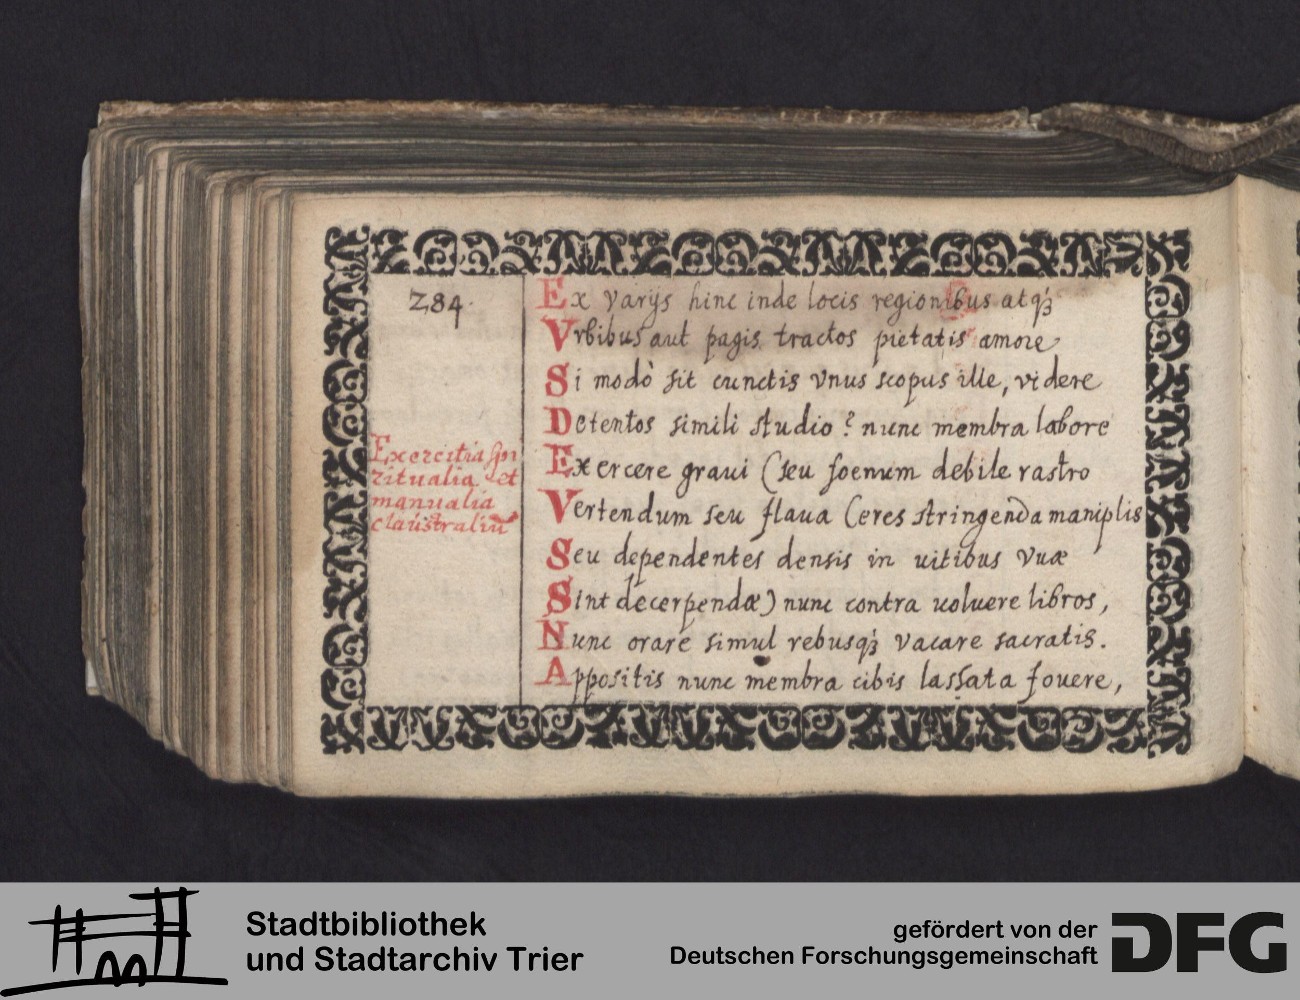 284.
Ex varijs hinc inde locis regionibus atq₃
Vrbibus aut pagis tractos pietatis amore
Si modò sit cunctis vnus scopus ille, videre
Detentos simili studio? nunc membra labore
Exercitia spi
ritualia et
manualia
claustraliũ
Exercere graui (seu foenum debile rastro
Vertendum seu flaua Ceres stringenda maniplis
Seu dependentes densis in uitibus vuæ
Sint decerpendæ) nunc contra uoluere libros,
Nunc orare simul rebusq₃ vacare sacratis.
Appositis nunc membra cibis lassata fouere,
Stadtbibliothek
und Stadtarchiv Trier
gefördert von der
Deutschen Forschungsgemeinschaft
DFG